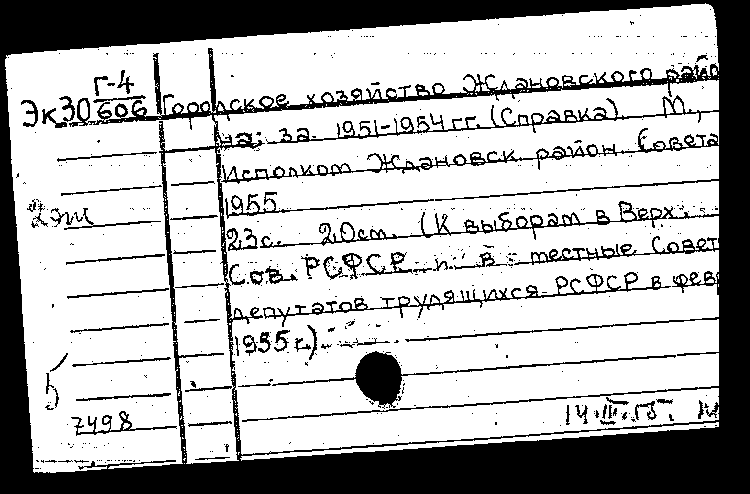 Г-4
Эк30 606 Городское хозяйство Ждановского райо
на: за 1951-1954 гг. (Справка). М.,
Исполком Ждановск. район. Совета
1955.
2 эк
23с. 20см. (К выборам в Верх.
Сов. РСФСР и в местные Совет
депутатов трудящихся РСФСР в февр
1955 г.)
5
7498
14.III.55.